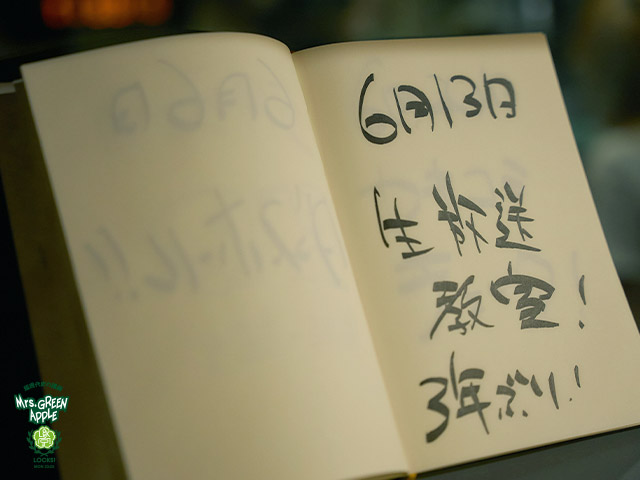 6月6日
6月13日
生放送
教室!
3年ぶり!!
Mrs. GREEN
APPLE
LOCKS!